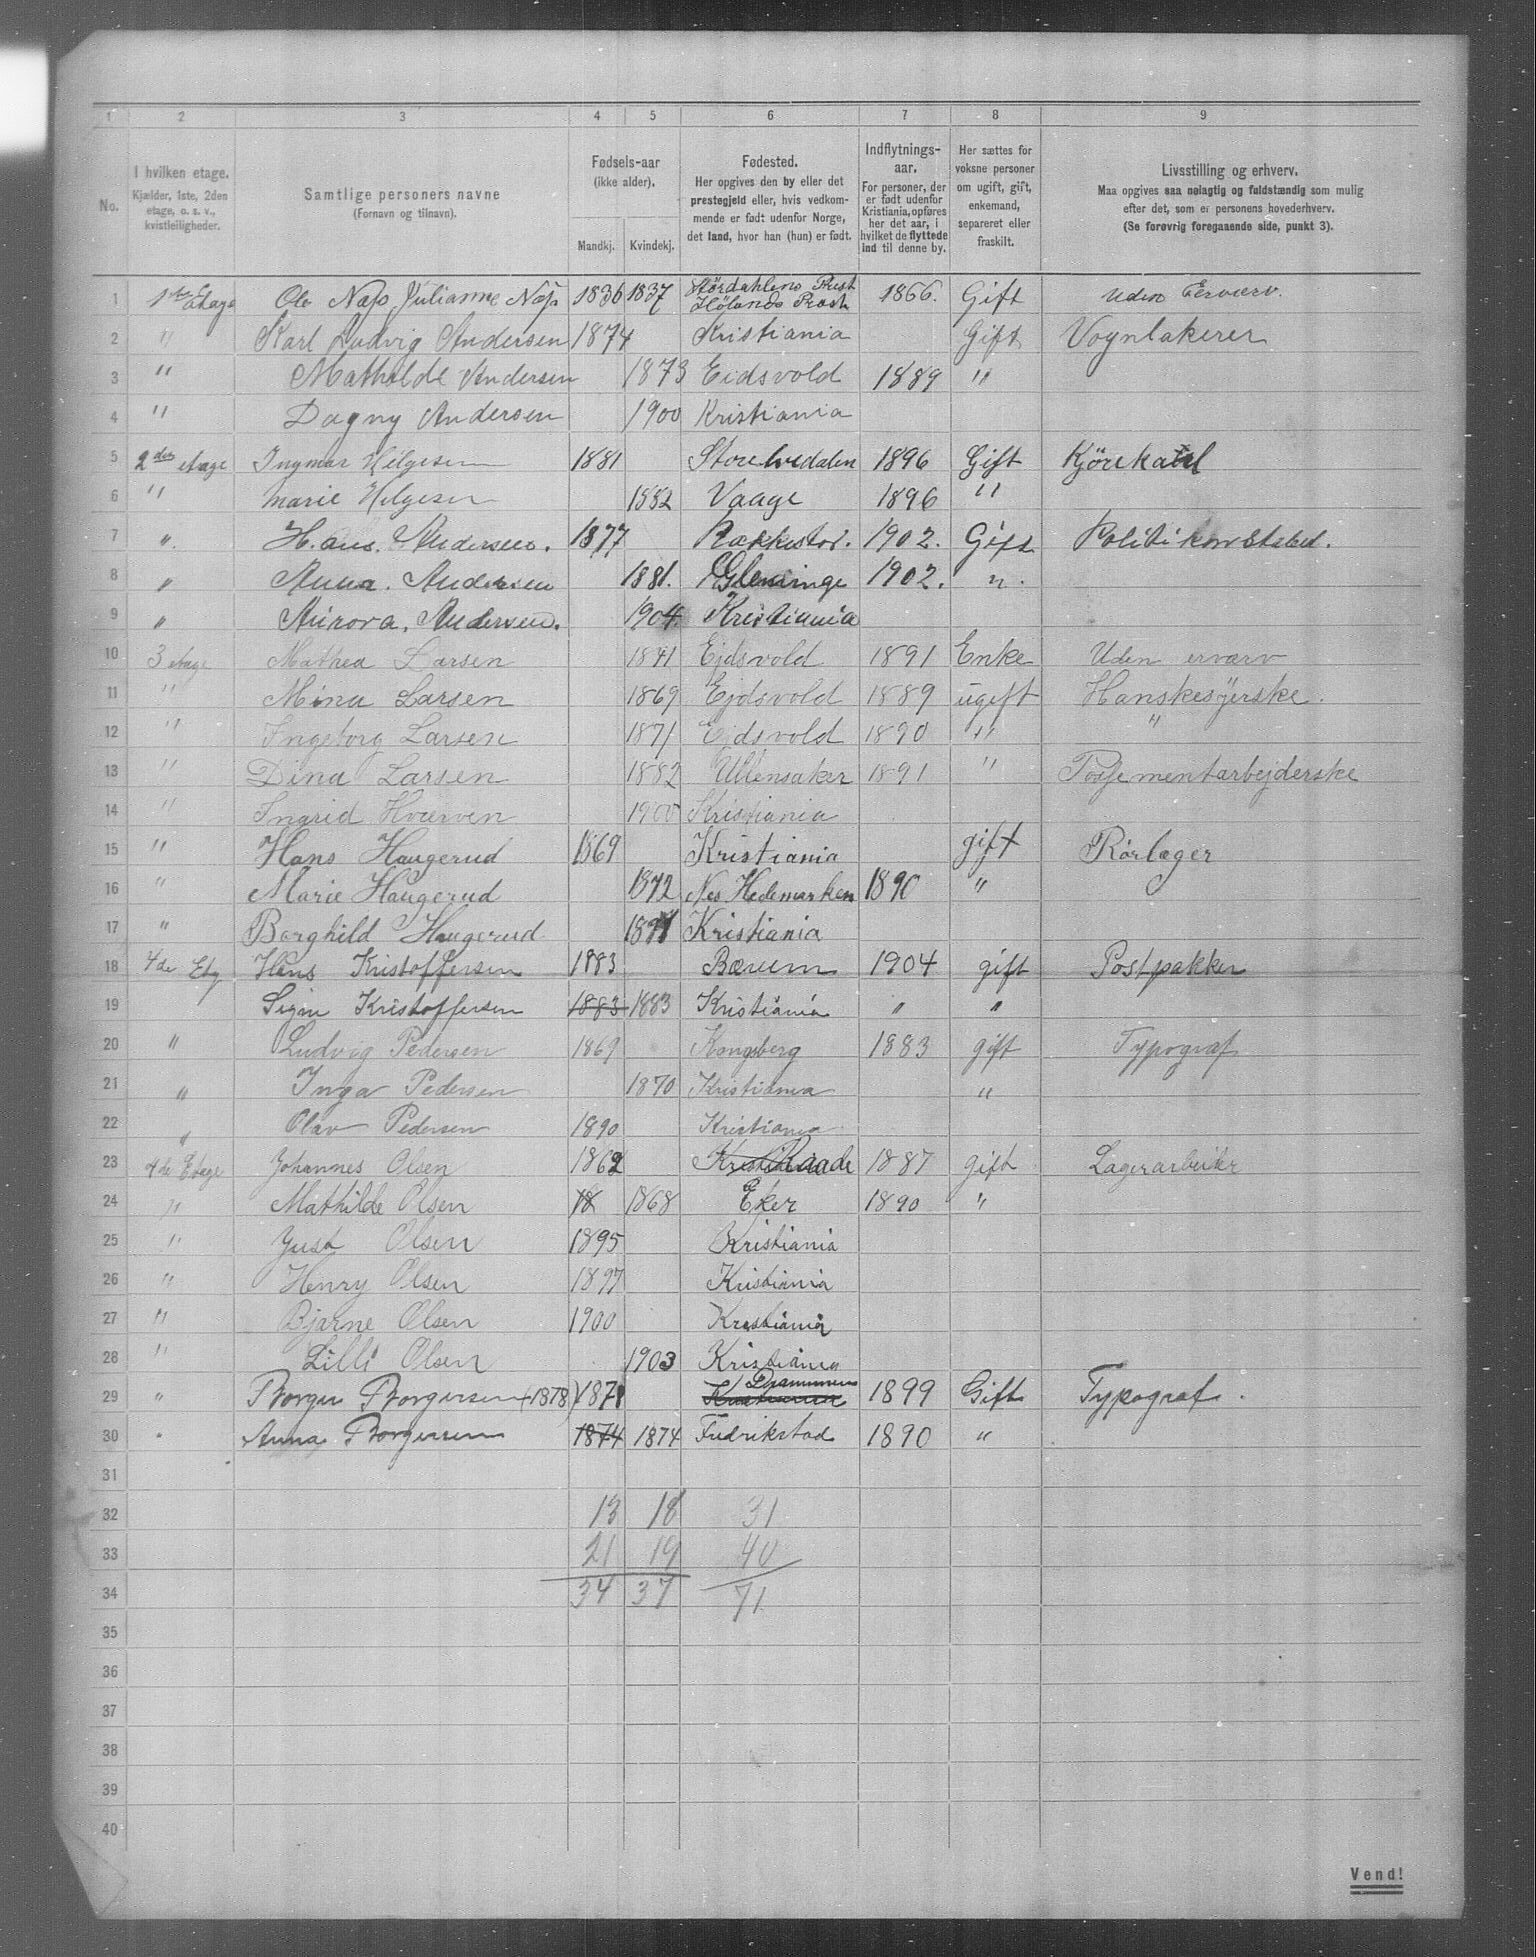 1 2 3 4 5 6 7 8 9
No. I hvilken etage. Kjælder, 1ste, 2den etage, o. s. v., kvistleiligheder. Samtlige personers navne (Fornavn og tilnavn). Fødsels-aar (ikke alder). Mandkj. Kvindekj. Fødested. Her opgives den by eller det prestegjeld eller, hvis vedkommende er født udenfor Norge, det land, hvor han (hun) er født. Indflytnings-aar. For personer, der er født udenfor Kristiania, opføres her det aar, i hvilket de flyttede ind til denne by. Her sættes for voksne personer om ugift, gift, enkemand, separeret eller fraskilt. Livsstilling og erhverv. Maa opgives saa nøiagtig og fuldstændig som mulig efter det, som er personens hovederhverv. (Se forøvrig foregaaende side, punkt 3).
1 1ste Etage Ole Næss Julianne Næss 1836 1837 Stördahlens Præst Hölands Præst 1866. Gift Uden Erværv.
2 " Karl Ludvig Andersen 1874 Kristiania Gift Vognlakerer
3 " Mathilde Andersen 1873 Eidsvold 1889 "
4 " Dagny Andersen 1900 Kristiania
5 2den etage Ingmar Helgesen 1881 Storelvedalen 1896 Gift Kjörekarl
6 " Marie Helgesen 1882 Vaage 1896 "
7 ". Hans. Andersen. 1877 Rakkestad. 1902. Gift Politikonstabel.
8 " Anna. Andersen 1881. Glemminge 1902. ".
9 " Aurora. Andersen. 1904. Kristiania
10 3 etage Mathea Larsen 1841 Ejdsvold 1891 Enke Uden erværv
11 " Mina Larsen 1869 Ejdsvold 1889 ugift Hanskesyerske.
12 " Ingeborg Larsen 1871 Eidsvold 1890 " "
13 " Dina Larsen 1882 Ullensaker 1891 " Possementarbejderske
14 " Ingrid Hvarven 1900 Kristiania
15 " Hans Haugerud 1869 Kristiania gift Rørlæger
16 " Marie Haugerud 1872 Nes Hedemarken 1890 "
17 " Borghild Haugerud Kristiania
18 4de Etg Hans Kristoffersen 1883 Bærum 1904 gift Postpakker
19 Signe Kristoffersen 1883 1883 Kristiania " "
20 " Ludvig Pedersen 1869 Kongsberg 1883 gift Typograf
21 " Inga Pedersen 1870 Kristiania "
22 " Olav Pedersen 1890 Kristiania
23 4de Etage Johannes Olsen 1862 Raade 1887 gift Lagerarbeider
24 " Mathilde Olsen 18 1868 Eker 1890 "
25 " Just Olsen 1895 Kristiania
26 " Henry Olsen 1897 Kristiania
27 " Bjarne Olsen 1900 Kristiania
28 " Lilli Olsen 1903 Kristiania
29 " Borger Borgersen (1878) 1878 Kristiania Drammen 1899 Gift Typograf.
30 " Anna Borgersen 1874 1874 Fredrikstad 1890 "
31
32 13 18 31
33 21 19 40
34 34 37 71
35
36
37
38
39
40
Vend!